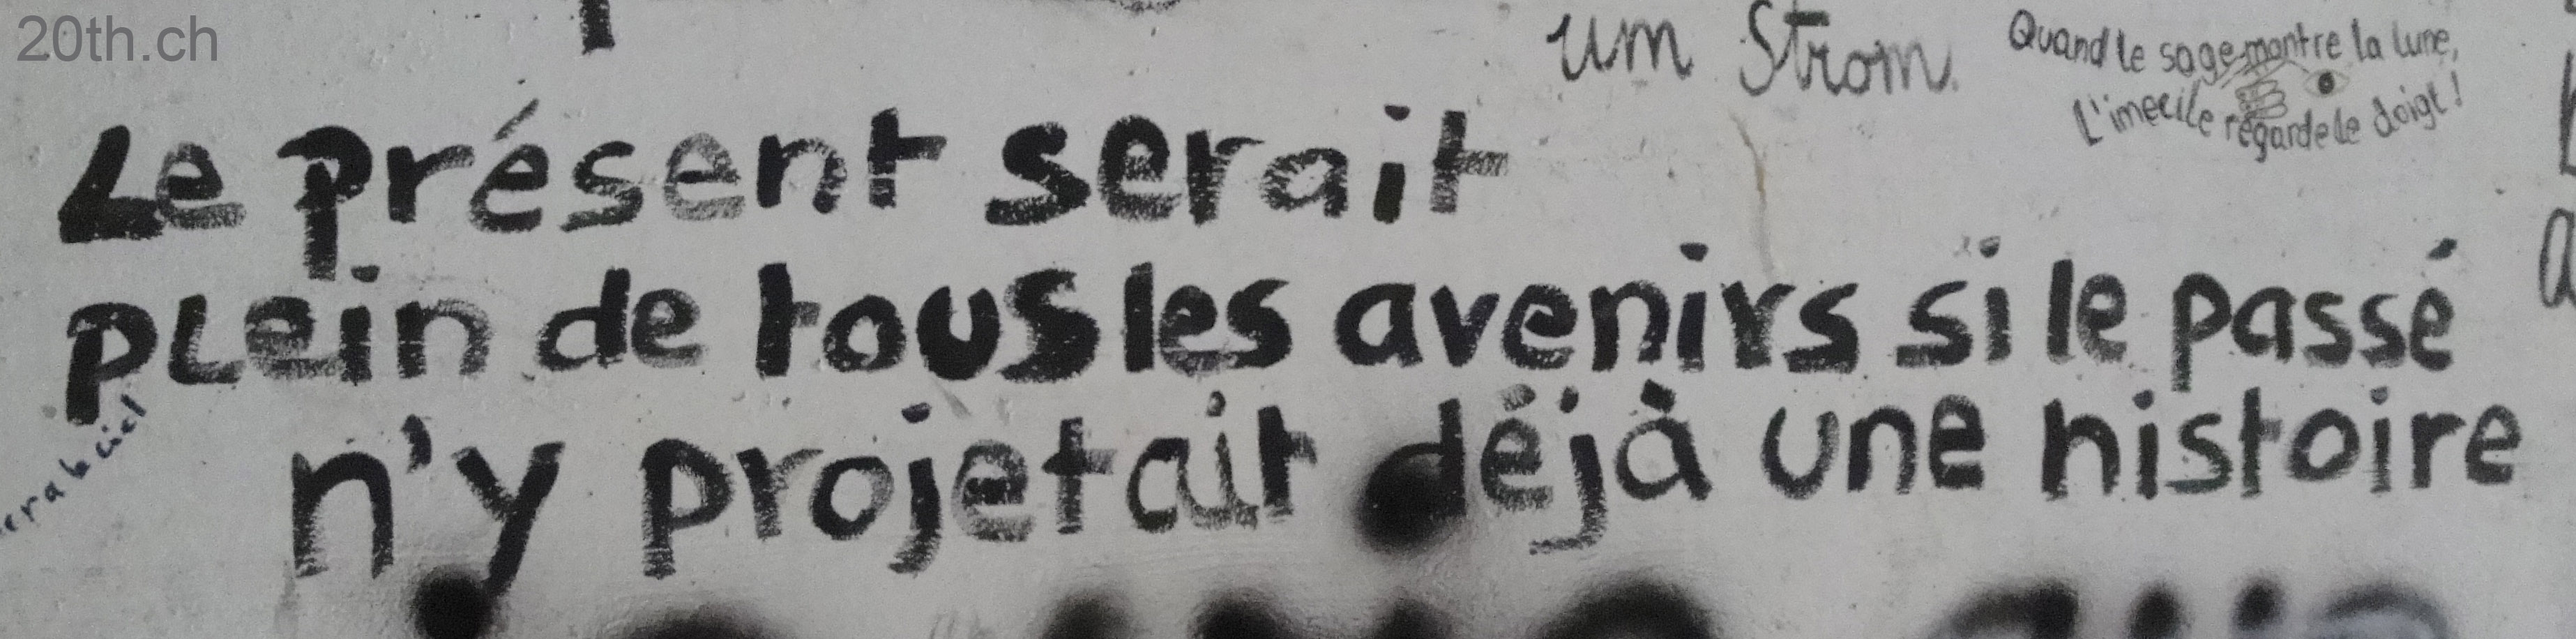 20th.ch
um Strom
Quand le sage montre la lune,
L'imecile regarde le doigt!
Le présent serait
plein de tous les avenirs si le passé
n'y projetait déjà une histoire